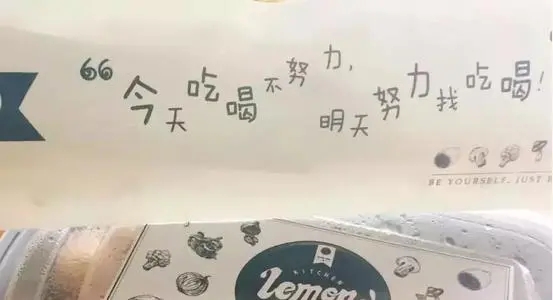 “今天吃喝不努力,
明天努力找吃喝!
BE YOURSELF, JUST
KITCHEN
Lemon